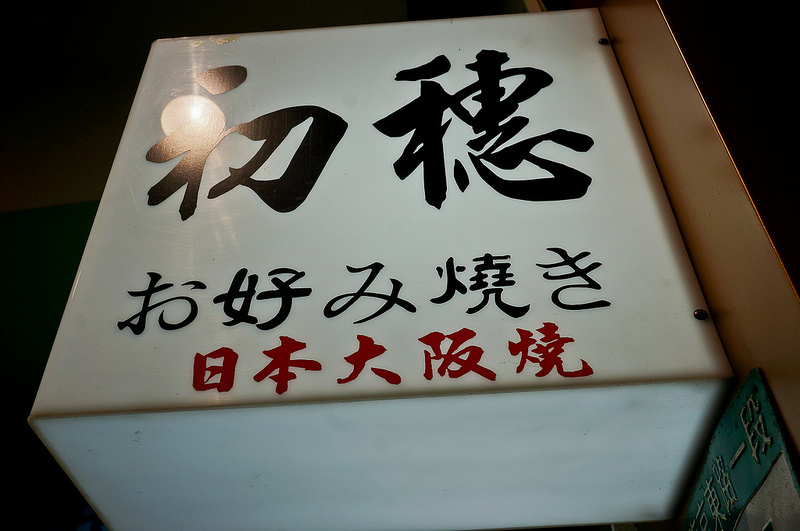 初穗
お好み燒き
日本大阪燒
東路一段